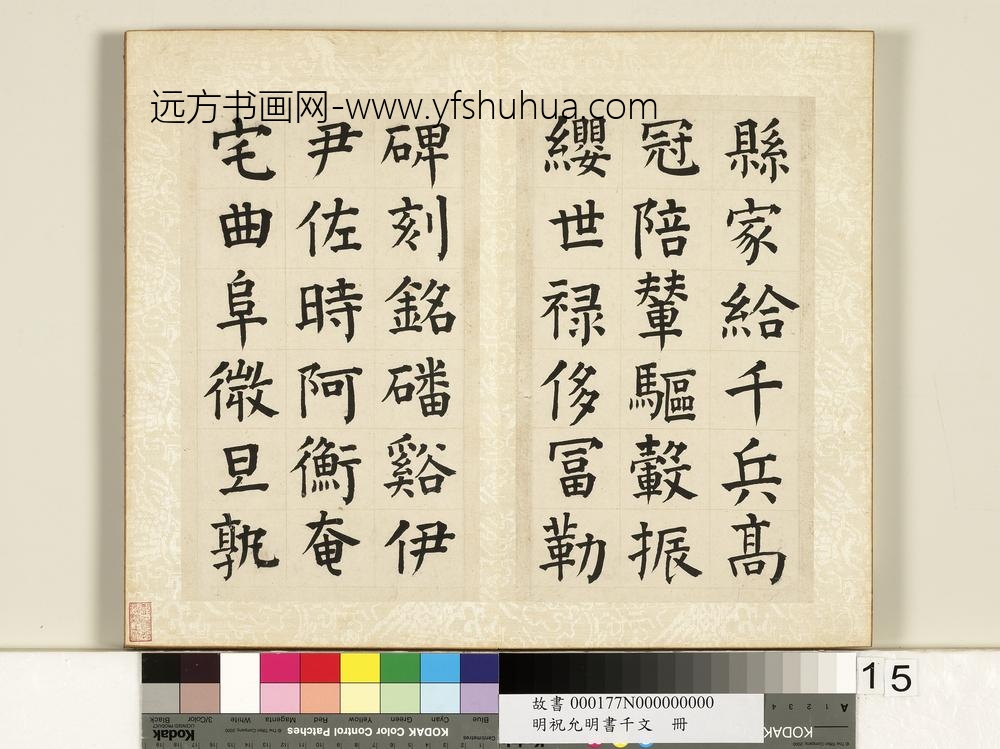 远方书画网-www.yfshuhua.com
縣家給千兵髙
冠陪輦驅轂振
纓世禄侈冨勒
碑刻銘磻谿伊
尹佐時阿衡奄
宅曲阜微旦孰
15
故書 000177N000000000
明祝允明書千文 冊
Kodak Color Control Patches
Blue Cyan Green Yellow Red Magenta White 3/Color Black
KODAK
A